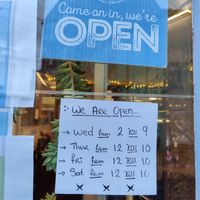 Come on in, we're
OPEN
We Are Open...
→ Wed from 2 till 9
→ Thur from 12 till 10
→ Fri from 12 till 10
→ Sat from 12 till 10